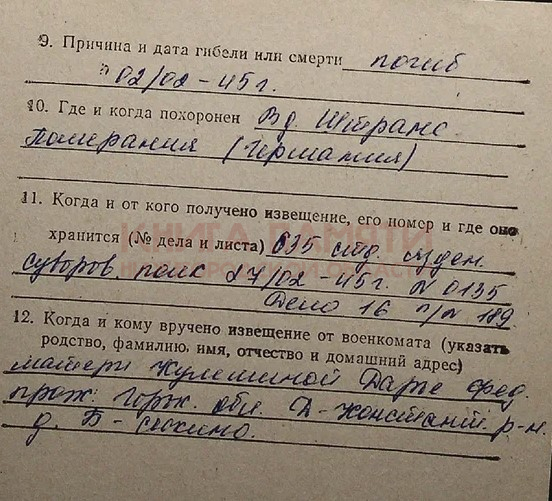 9. Причина и дата гибели или смерти погиб
02/02-45 г.
10. Где и когда похоронен В д. Штранс
Померания (Германия)
11. Когда и от кого получено извещение, его номер и где оно
КНИГА ПАМЯТИ
хранится (№ дела и листа) 635 стр. орден.
НИЖЕГОРОДСКОЙ ОБЛАСТИ
Суворов полк 27/02-45 г. N 0135
Дело 16 п/N 189.
12. Когда и кому вручено извещение от военкомата (указать
родство, фамилию, имя, отчество и домашний адрес)
матери Кулешиной Дарье Фед.
прож. Горьк. обл. Д-Констант. р-н.
д. Б-Сескино.